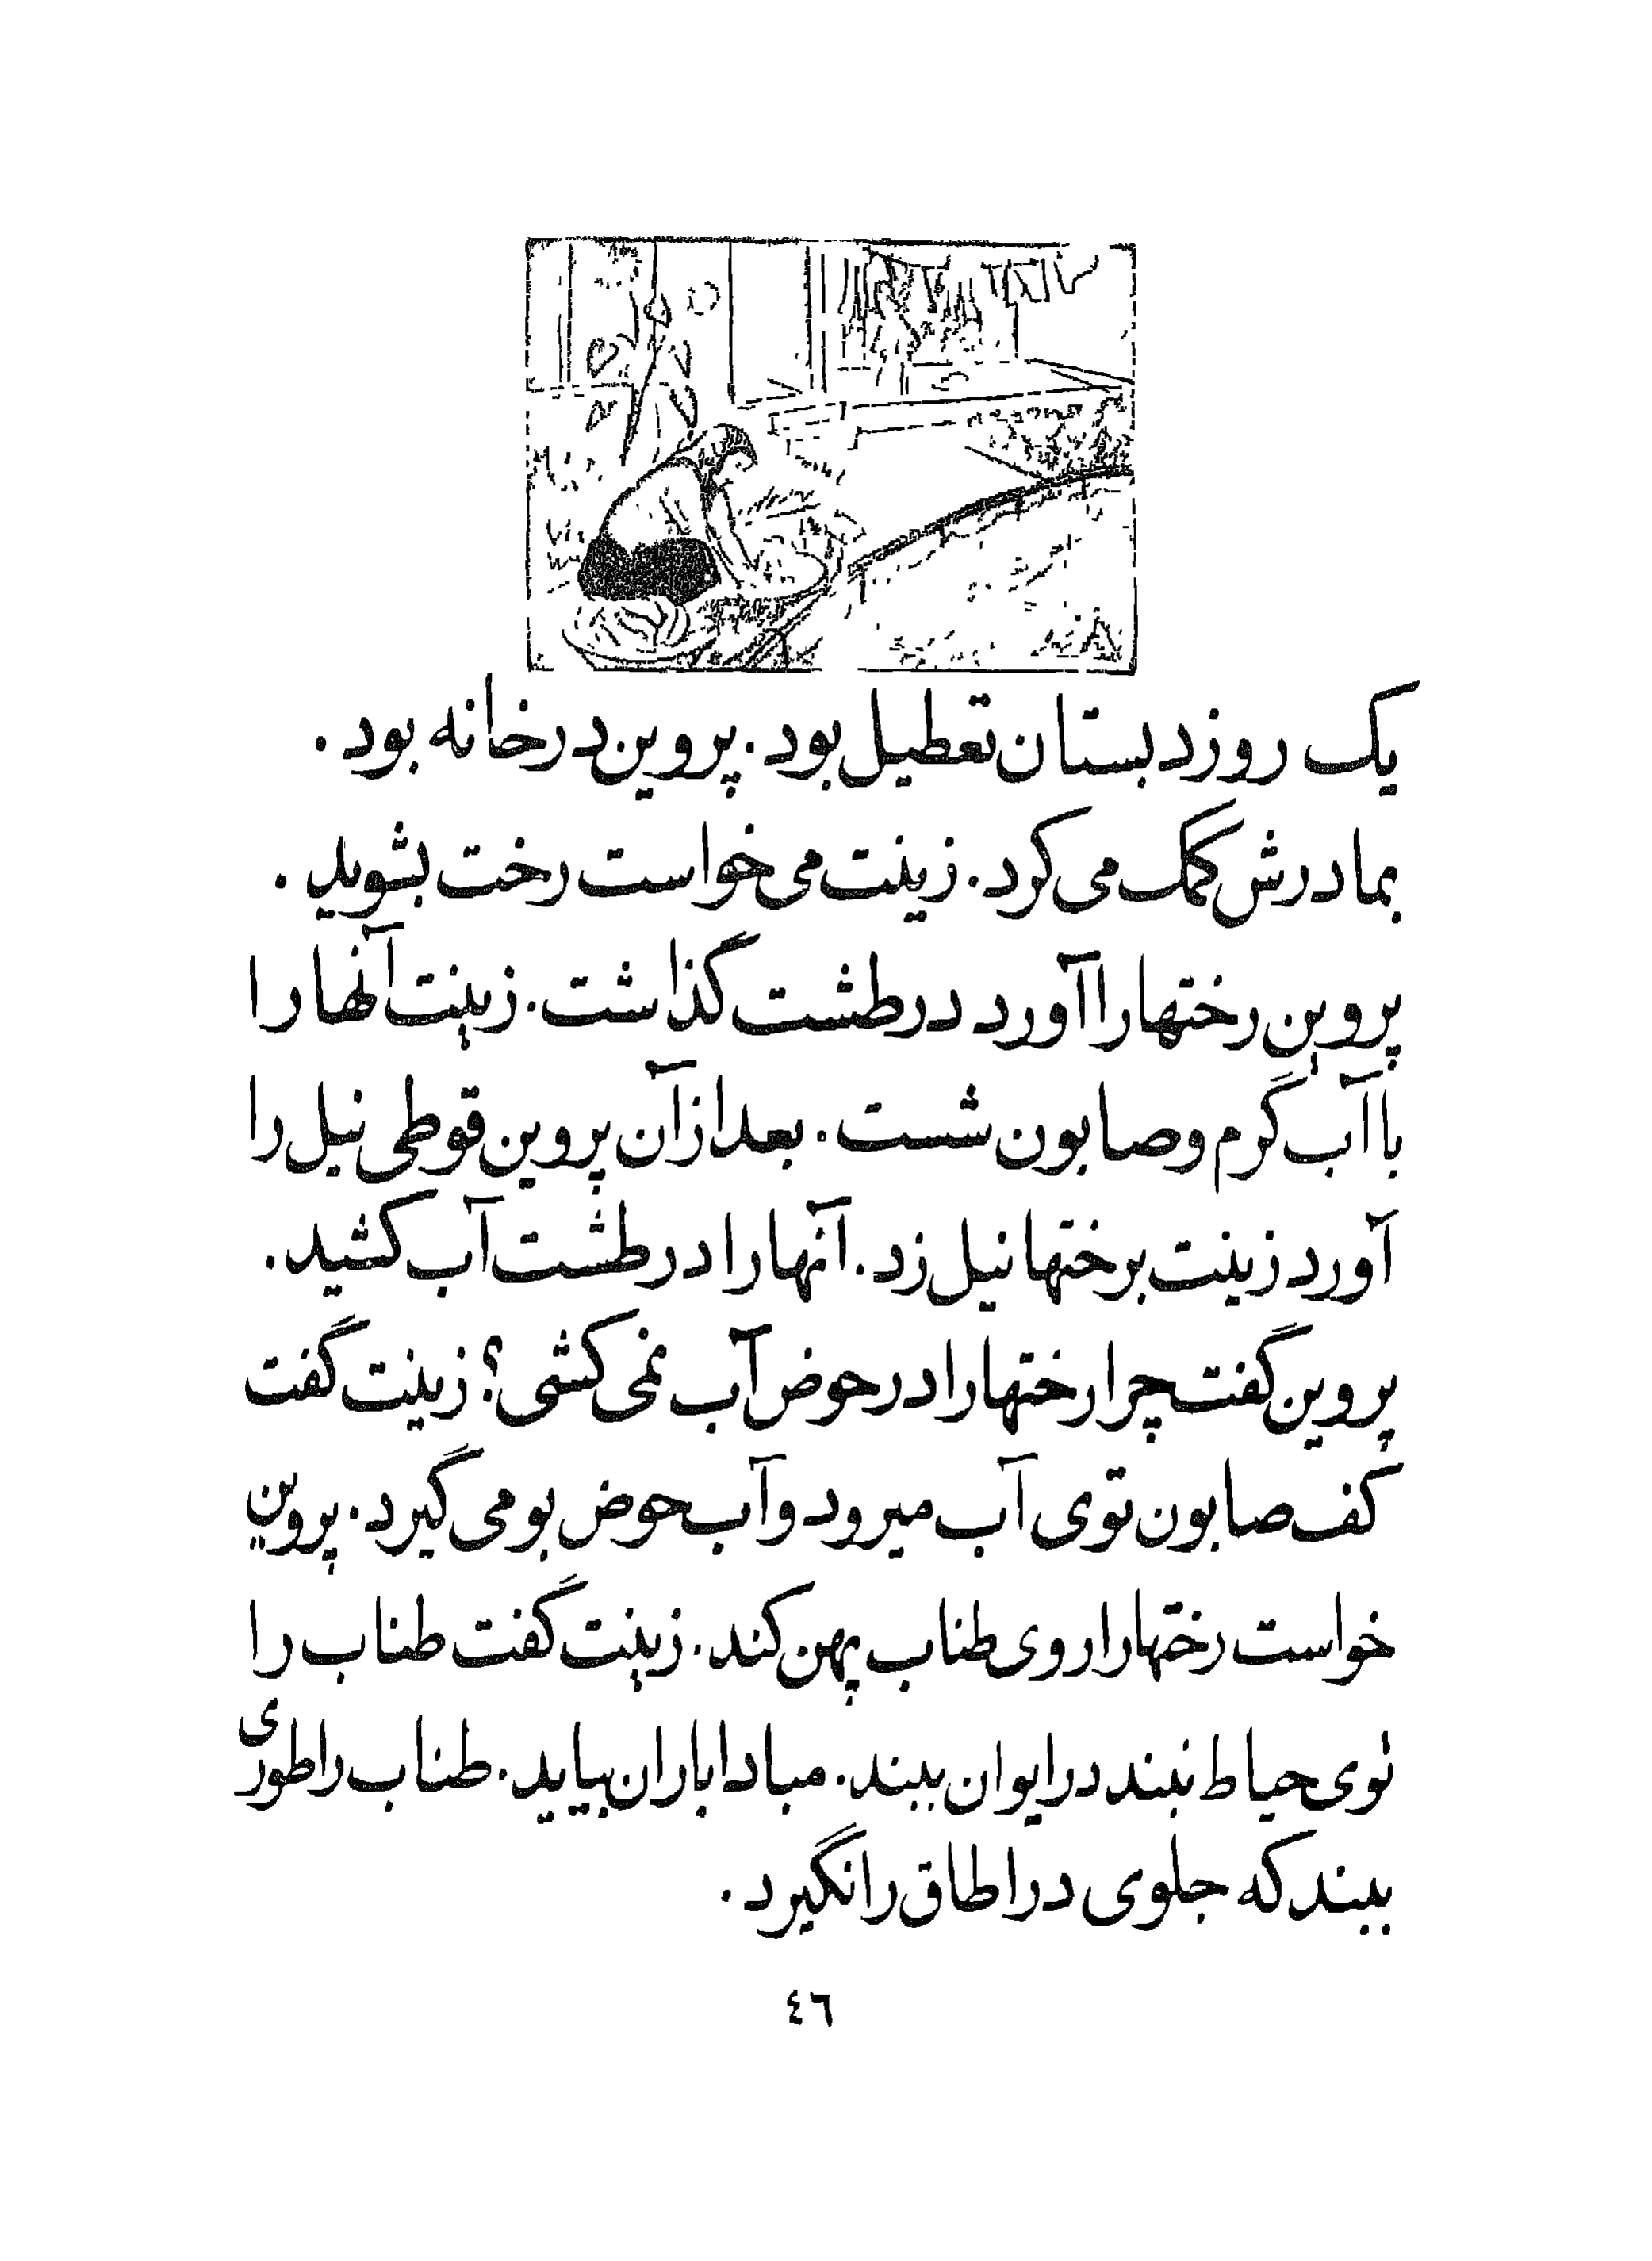 یک روز دبستان تعطیل بود. پروین در خانه بود.
بمادرش کمک می‌کرد. زینت می‌خواست رخت بشوید.
پروین رختها را آورد در طشت گذاشت. زینت آنها را
با آب گرم و صابون شست. بعد از آن پروین قوطی نیل را
آورد زینت برختها نیل زد. آنها را در طشت آب کشید.
پروین گفت چرا رختها را در حوض آب نمی‌کشی؟ زینت گفت
کف صابون توی آب میرود و آب حوض بو می‌گیرد. پروین
خواست رختها را روی طناب پهن کند. زینت گفت طناب را
توی حیاط نبند در ایوان ببند. مبادا باران بیاید. طناب را طوری
ببند که جلوی در اطاق را نگیرد.
٤٦